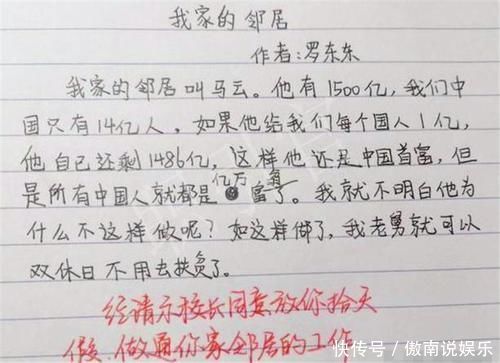 我家的邻居
作者:罗东东
我家的邻居叫马云。他有1500亿,我们中
国只有14亿人。如果他给我们每个国人1亿,
他自己还剩1486亿,这样他还是中国首富,但
是所有中国人就都是亿万富翁了。我就不明白他为
什么不这样做呢?如这样做了,我老舅就可以
双休日不用去扶贫了。
经请示校长同意放你拾天
假,做通你家邻居的工作
快传号/傲南说娱乐